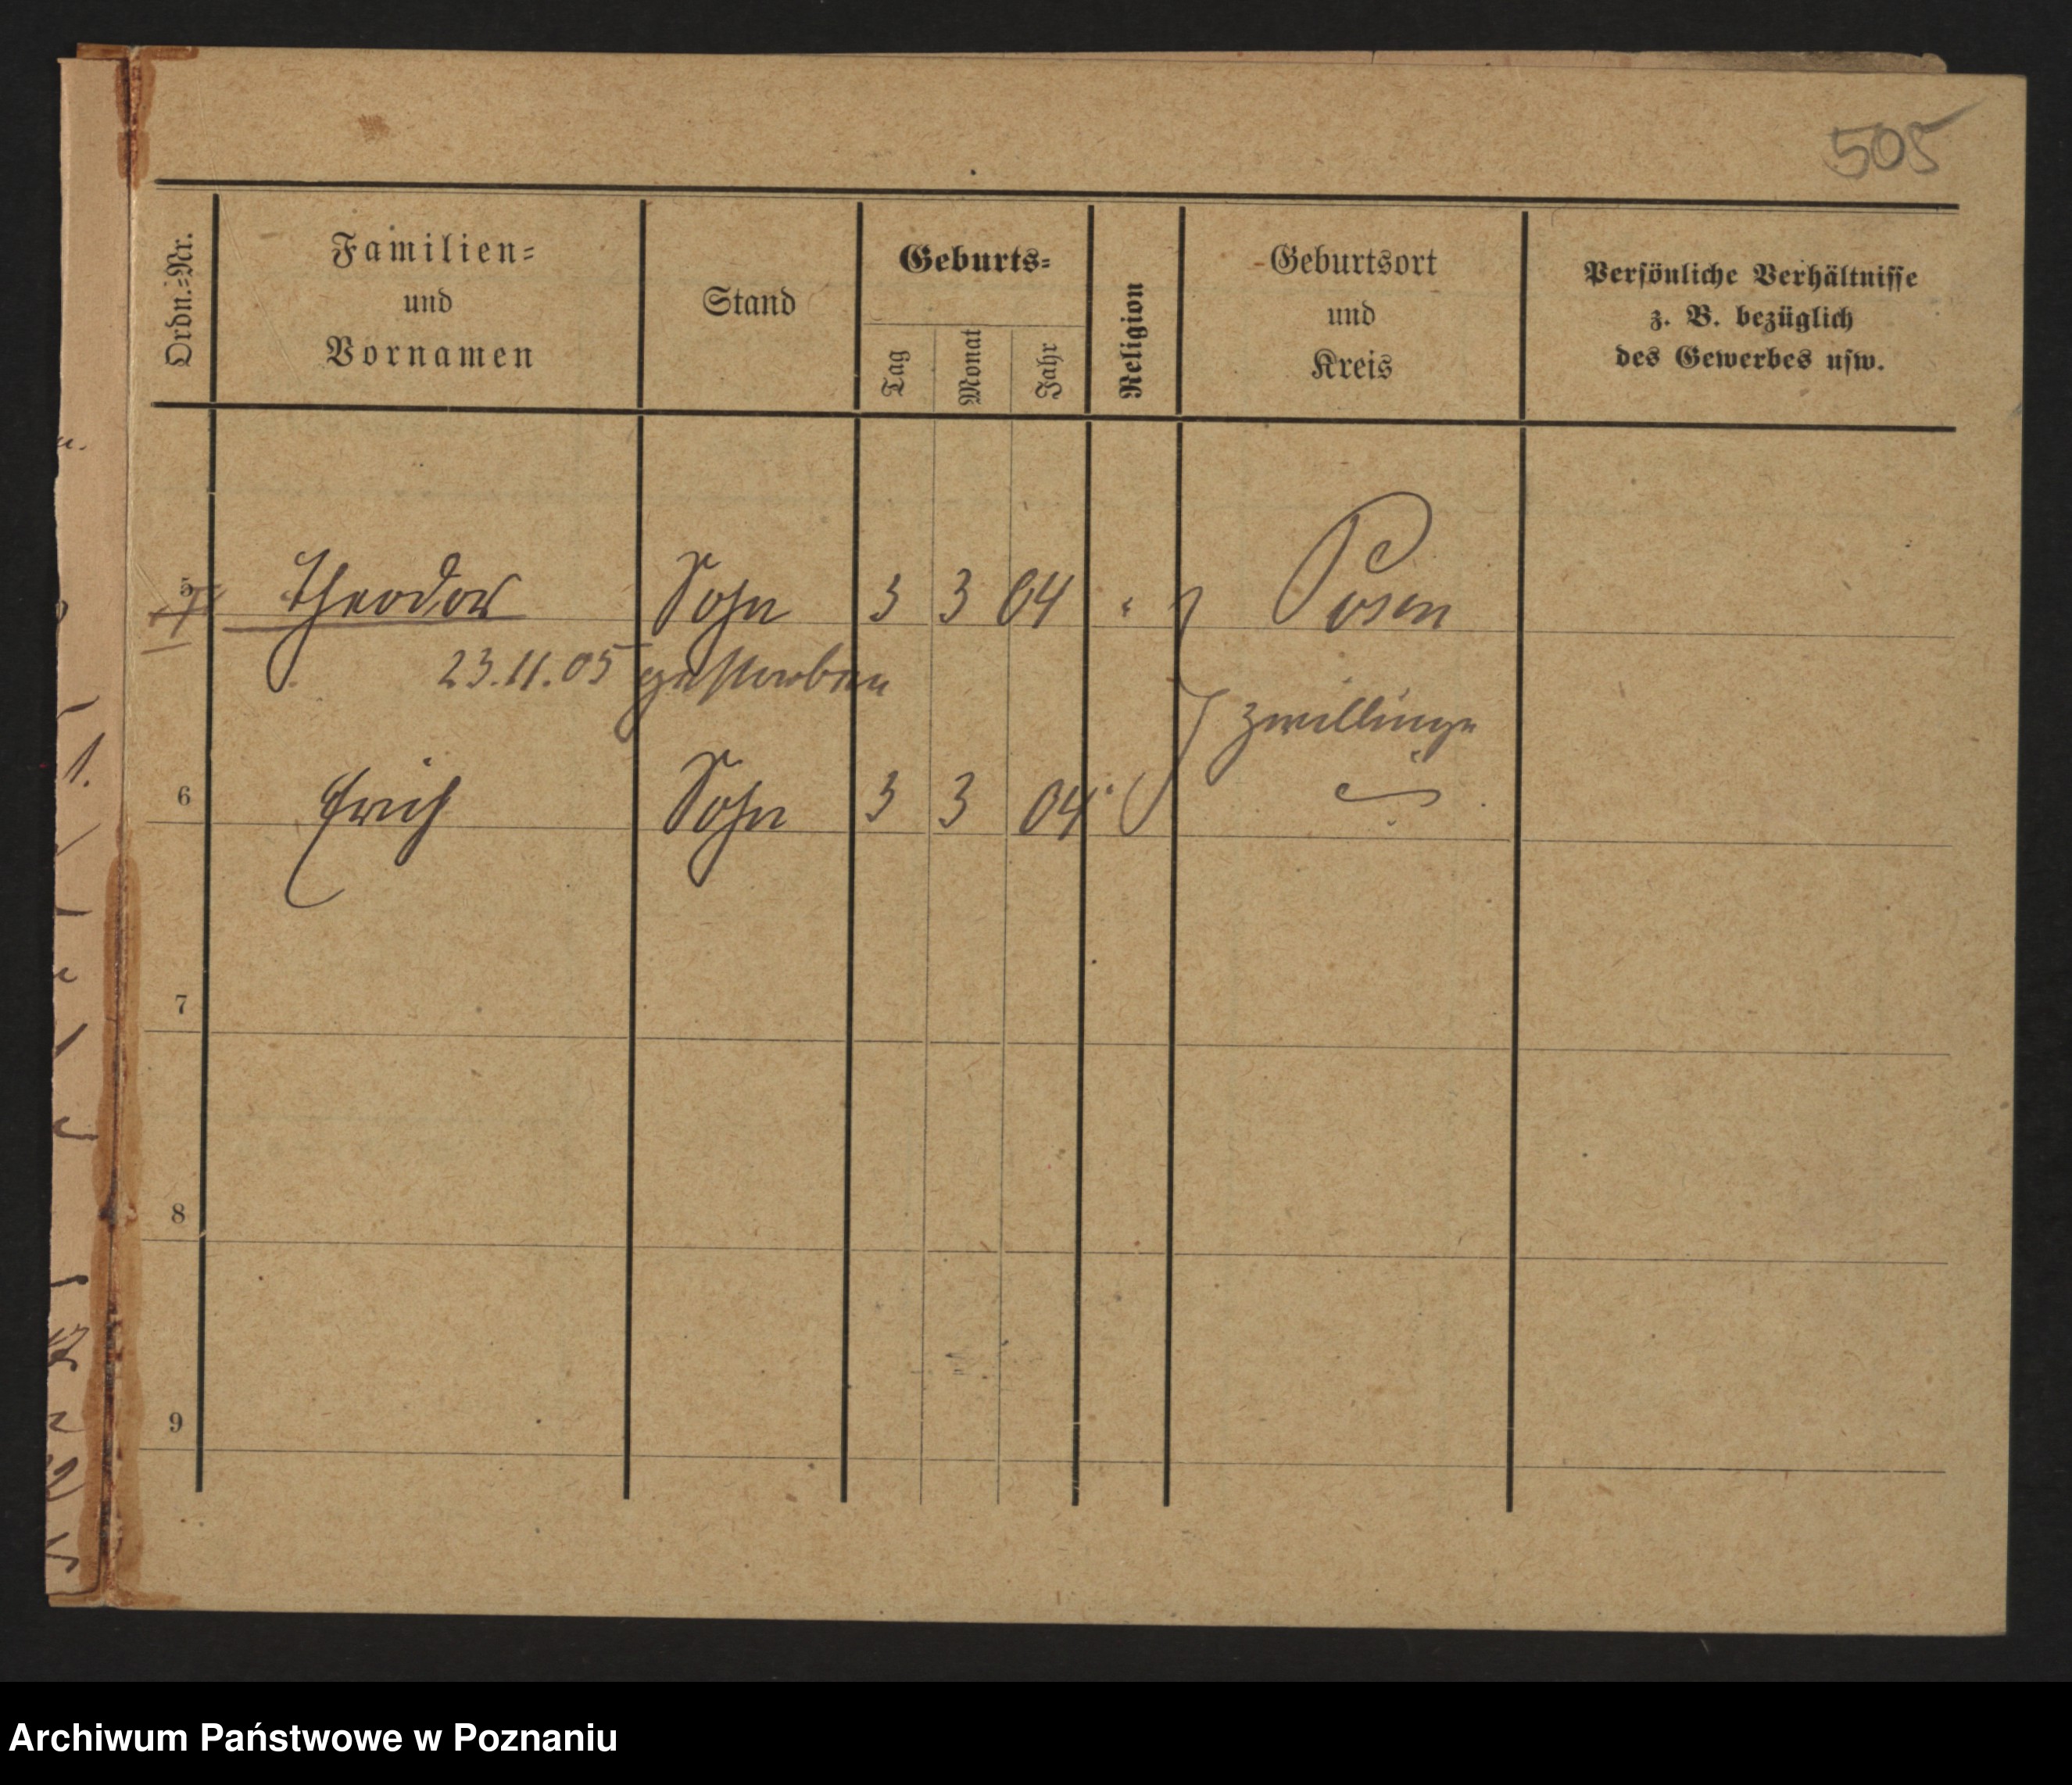 505
Ordn.=Nr.
Familien=
und
Vornamen
Stand
Geburts=
Tag
Monat
Jahr
Religion
Geburtsort
und
Kreis
Persönliche Verhältnisse
z. B. bezüglich
des Gewerbes usw.
5 Theodor Sohn 3 3 04 " Posen
23.11.05 gestorben
Zwillinge
6 Erich Sohn 3 3 04
7
8
9
Archiwum Państwowe w Poznaniu